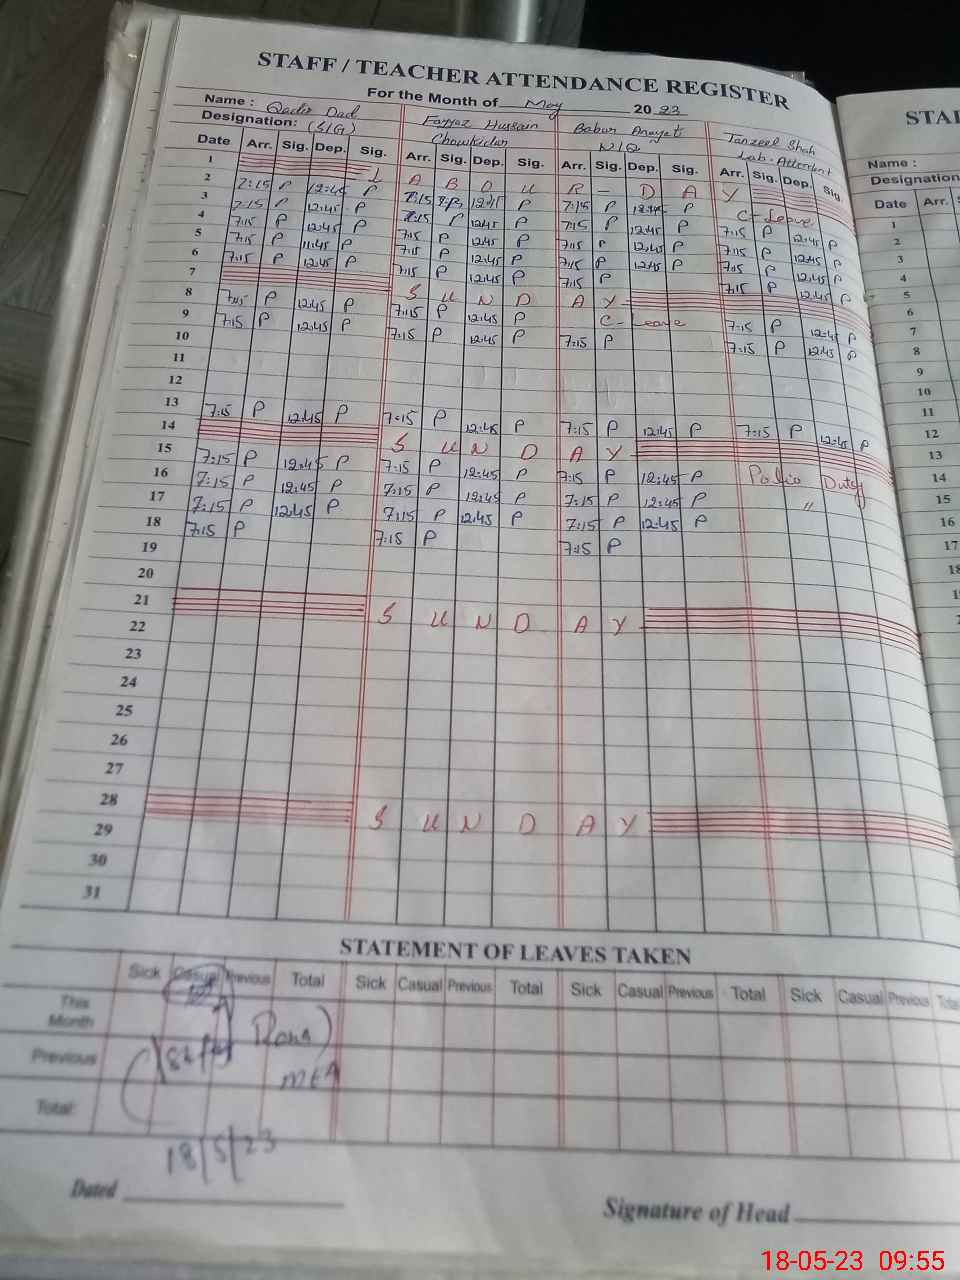 STAFF / TEACHER ATTENDANCE REGISTER
For the Month of May 2023
Name : Qadir Dad Fayyaz Hussain Babar Anayat Tanzeel Shah
Designation: (S/G) Chowkidar N/Q Lab. Attendent
Date Arr. Sig. Dep. Sig. Arr. Sig. Dep. Sig. Arr. Sig. Dep. Sig. Arr. Sig. Dep. Sig.
1 L A B O U R - D A Y
2 7:15 P 12:45 P 7:15 P 12:45 P 7:15 P 12:45 P C-Leave
3 7:15 P 12:45 P 7:15 P 12:45 P 7:15 P 12:45 P 7:15 P 12:45 P
4 7:15 P 12:45 P 7:15 P 12:45 P 7:15 P 12:45 P 7:15 P 12:45 P
5 7:15 P 11:45 P 7:15 P 12:45 P 7:15 P 12:45 P 7:15 P 12:45 P
6 7:15 P 12:45 P 7:15 P 12:45 P 7:15 P 7:15 P 12:45 P
7 S U N D A Y
8 7:15 P 12:45 P 7:15 P 12:45 P C-Leave 7:15 P 12:45 P
9 7:15 P 12:45 P 7:15 P 12:45 P 7:15 P 7:15 P 12:45 P
10
11
12
13 7:15 P 12:45 P 7:15 P 12:45 P 7:15 P 12:45 P 7:15 P 12:45 P
14 S U N D A Y
15 7:15 P 12:45 P 7:15 P 12:45 P 7:15 P 12:45 P Polio Duty
16 7:15 P 12:45 P 7:15 P 12:45 P 7:15 P 12:45 P "
17 7:15 P 12:45 P 7:15 P 12:45 P 7:15 P 12:45 P
18 7:15 P 7:15 P 7:15 P
19
20
21 S U N D A Y
22
23
24
25
26
27
28 S U N D A Y
29
30
31
STATEMENT OF LEAVES TAKEN
Sick Casual Previous Total Sick Casual Previous Total Sick Casual Previous Total Sick Casual Previous
This Month
Previous
MEA
Total:
18/5/23
Dated
Signature of Head
STA
Name :
Designation
Date Arr.
1
2
3
4
5
6
7
8
9
10
11
12
13
14
15
16
17
18-05-23 09:55